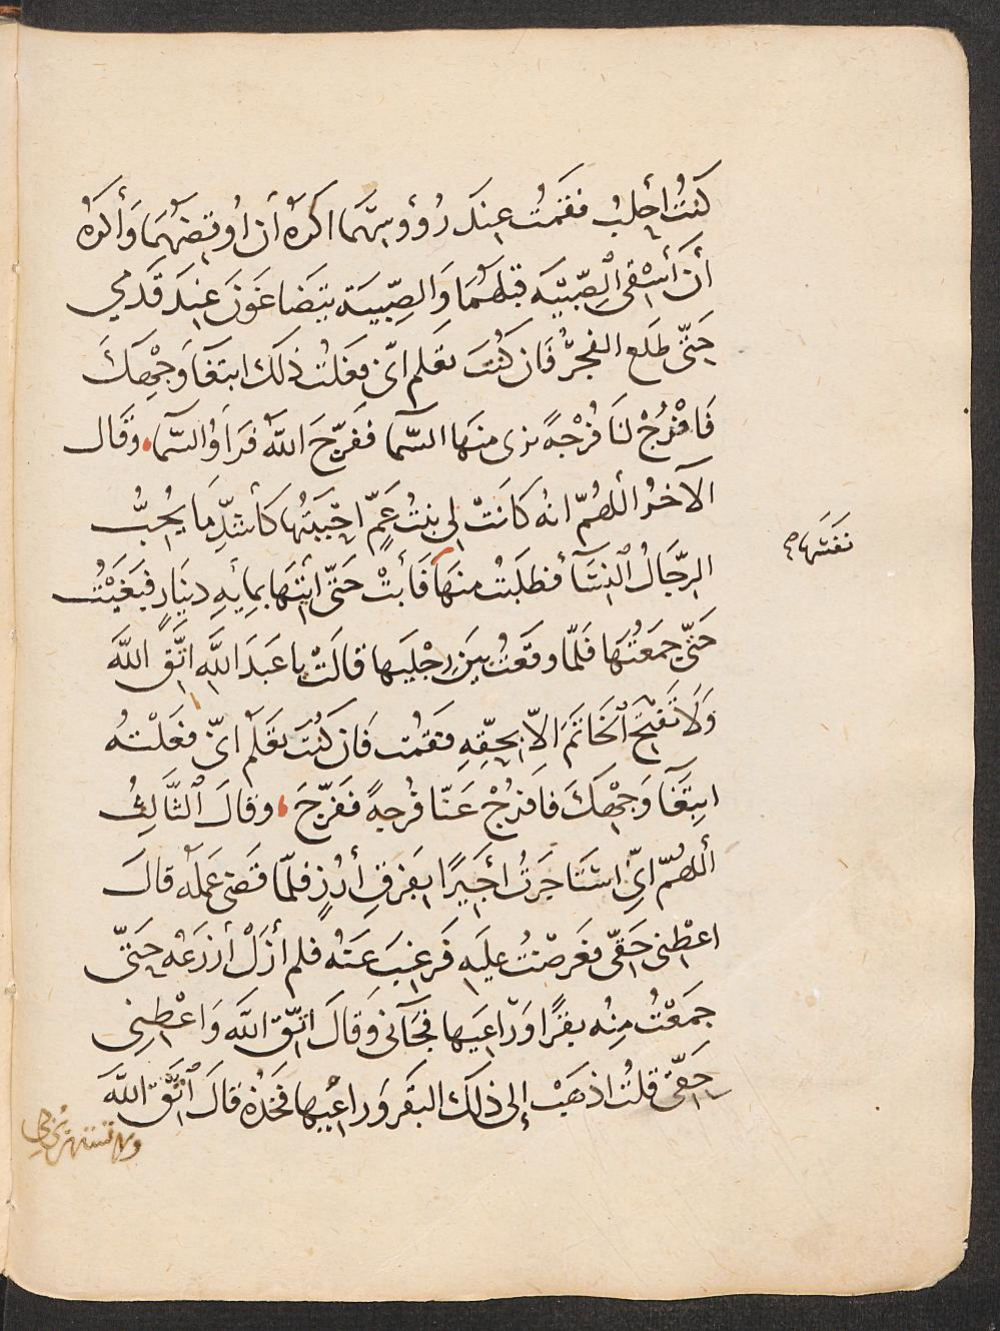 كنتُ احلبُ فقمتُ عِندَ رُؤوسِهِمَا اكرَهُ أن اُوقِضَهُمَا وَأكرَهُ
أنْ أَسْقى الصِّبيَةَ قبلهُمَا وَالصِّبيَة يتضَاغَوْنَ عِندَ قَدَمي
حَتّى طَلَع الفجرُ فَان كُنتَ تعلم انّى فعَلتُ ذلك ابتغَآ وَجْهِكَ
فَافْرُجْ لنَا فُرْجةً نرى مِنهَا السّما ففَرّجَ اللهُ فرَاَوُا السّمآ وقَال
الآخرُ أللهُمّ انهُ كَانَتْ لِى بِنتُ عَمٍّ احْبَبتُهَا كَأشدِّ مَا يُحِبُّ
الرّجَالُ النِسَآ فطلَبتُ مِنهَا فَأَبتْ حَتّى اتيْتَهَا بمِايَةِ دِينَارٍ فبَغَيْتُ
حَتّى جمَعْتُهَا فَلمّا وقَعْتُ بَينَ رِجْليهَا قالتْ يا عَبدَ اللهِ اتّقِ اللهَ
وَلَا تَفتَحْ الخَاتَمَ الاّ بحَقّهِ فقمْت فَان كُنتَ تعْلم انّى فعَلْتهُ
ابتِغَآ وَجْهِكَ فافرُجْ عَنّا فُرجةً ففرّجَ وقالَ الثَّالِثُ
أللهُمّ انِّى اسْتَاجَرْتُ اجَيرًا بفَرَقِ أَرُزٍ فلمّا قضى عَمَلَهُ قالَ
اعطِنى حَقّى فعَرضْتُ عليَهِ فَرَغِبَ عَنهُ فلم أزَلْ أزرَعُهُ حَتّى
جمَعْتُ مِنهُ بقرًا وَرَاعِيَها فجَآنى وَقالَ اتّقِ اللهَ وَاعْطِنِى
حَقّى قلتُ اذهَبْ إلى ذلكَ البَقَر وَراعِيها فخذهُ قالَ اتّقِ اللهَ
ولا تستهزئ بى
نفسَها صح